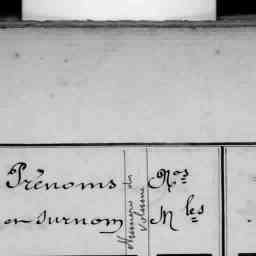 Prénoms
en surnom
Numéro du
Volume
Nos
Mles